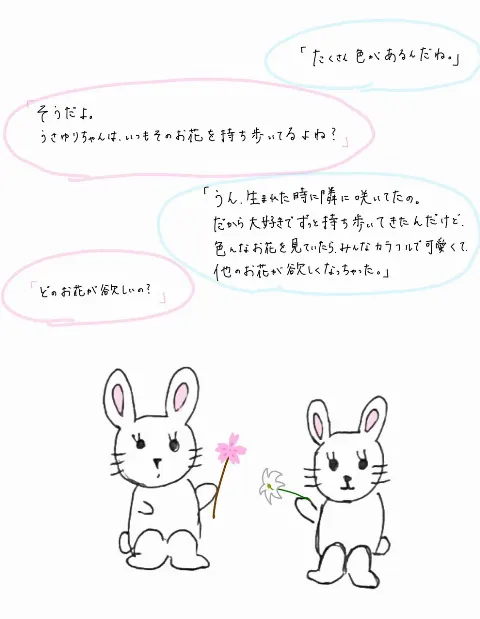 「たくさん色があるんだね。」
「そうだよ。
うさゆりちゃんは、いつもそのお花を持ち歩いてるよね?」
「うん、生まれた時に隣に咲いてたの。
だから大好きでずっと持ち歩いてきたんだけど、
色んなお花を見ていたら、みんなカラフルで可愛くて、
他のお花が欲しくなっちゃった。」
「どのお花が欲しいの?」